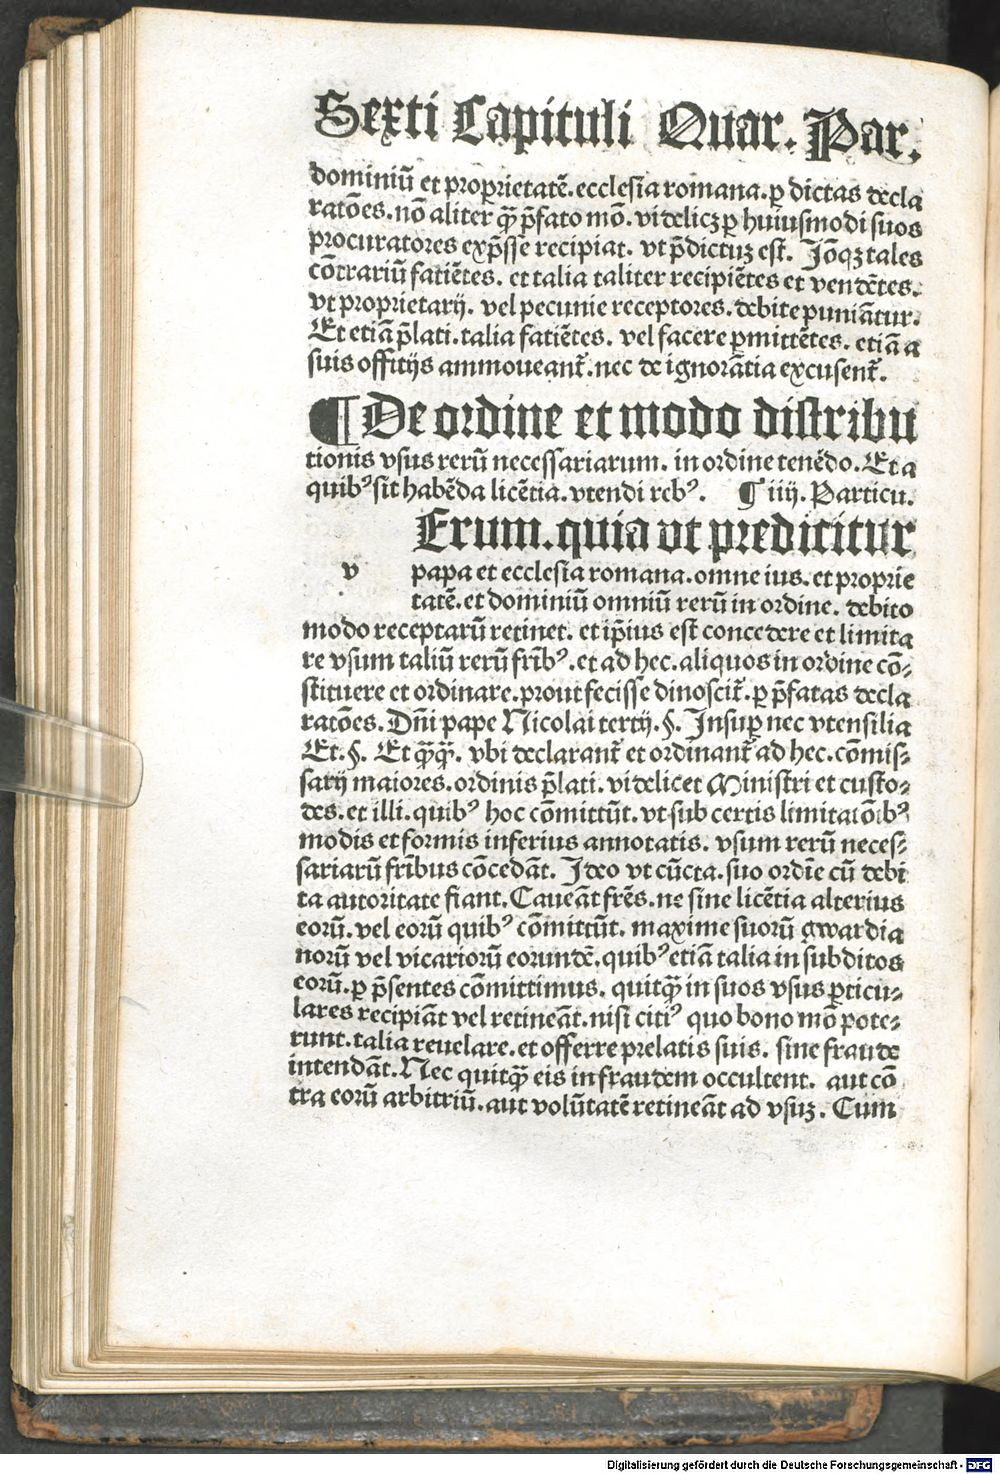 Sexti Capituli Quar. Par.
dominiū et proprietatē. ecclesia romana. ꝑ dictas decla
ratōes. nō aliter qꝫ p̄fato mō. videlicꝫ ꝑ huiusmodi suos
procuratores exp̄sse recipiat. vt p̄dictuꝫ est. Jōqꝫ tales
cōtrariū fatiētes. et talia taliter recipiētes et vendētes.
vt proprietarij. vel pecunie receptores. debite puniātur.
Et etiā p̄lati. talia fatiētes. vel facere ꝑmittētes. etiā a
suis offitijs ammoueant᷑. nec de ignorātia excusent᷑.
¶ De ordine et modo distribu
tionis vsus rerū necessariarum. in ordine tenēdo. Et a
quibꝰ sit habēda licētia. vtendi rebꝰ. ¶ iiij. Particu.
Erum. quia vt predicitur
v papa et ecclesia romana. omne ius. et proprie
tatē. et dominiū omniū rerū in ordine. debito
modo receptarū retinet. et ip̄ius est concedere et limita
re vsum taliū rerū fr̄ibꝰ. et ad hec. aliquos in ordine cō⸗
stituere et ordinare. prout fecisse dinoscit᷑. ꝑ p̄fatas decla
ratōes. Dn̄i pape Nicolai tertij. §. Insuꝑ nec vtensilia
Et. §. Et qꝫqꝫ. vbi declarant᷑ et ordinant᷑ ad hec. cōmis⸗
sarij maiores. ordinis p̄lati. videlicet Ministri et custo⸗
des. et illi. quibꝰ hoc cōmittūt. vt sub certis limitatōibꝰ
modis et formis inferius annotatis. vsum rerū neces⸗
sariarū fr̄ibus cōcedāt. Ideo vt cūcta. suo ordīe cū debi
ta autoritate fiant. Caueāt frēs. ne sine licētia alterius
eorū. vel eorū quibꝰ cōmittūt. maxime suorū gwardia
norū vel vicariorū eorundē. quibꝰ etiā talia in subditos
eorū. ꝑ p̄sentes cōmittimus. quitqꝫ in suos vsus ꝑticu⸗
lares recipiāt vel retineāt. nisi citiꝰ quo bono mō pote⸗
runt. talia reuelare. et offerre prelatis suis. sine fraude
intendāt. Nec quitqꝫ eis in fraudem occultent. aut cō
tra eorū arbitriū. aut volūtatē retineāt ad vsuꝫ. Cum
Digitalisierung gefördert durch die Deutsche Forschungsgemeinschaft - DFG